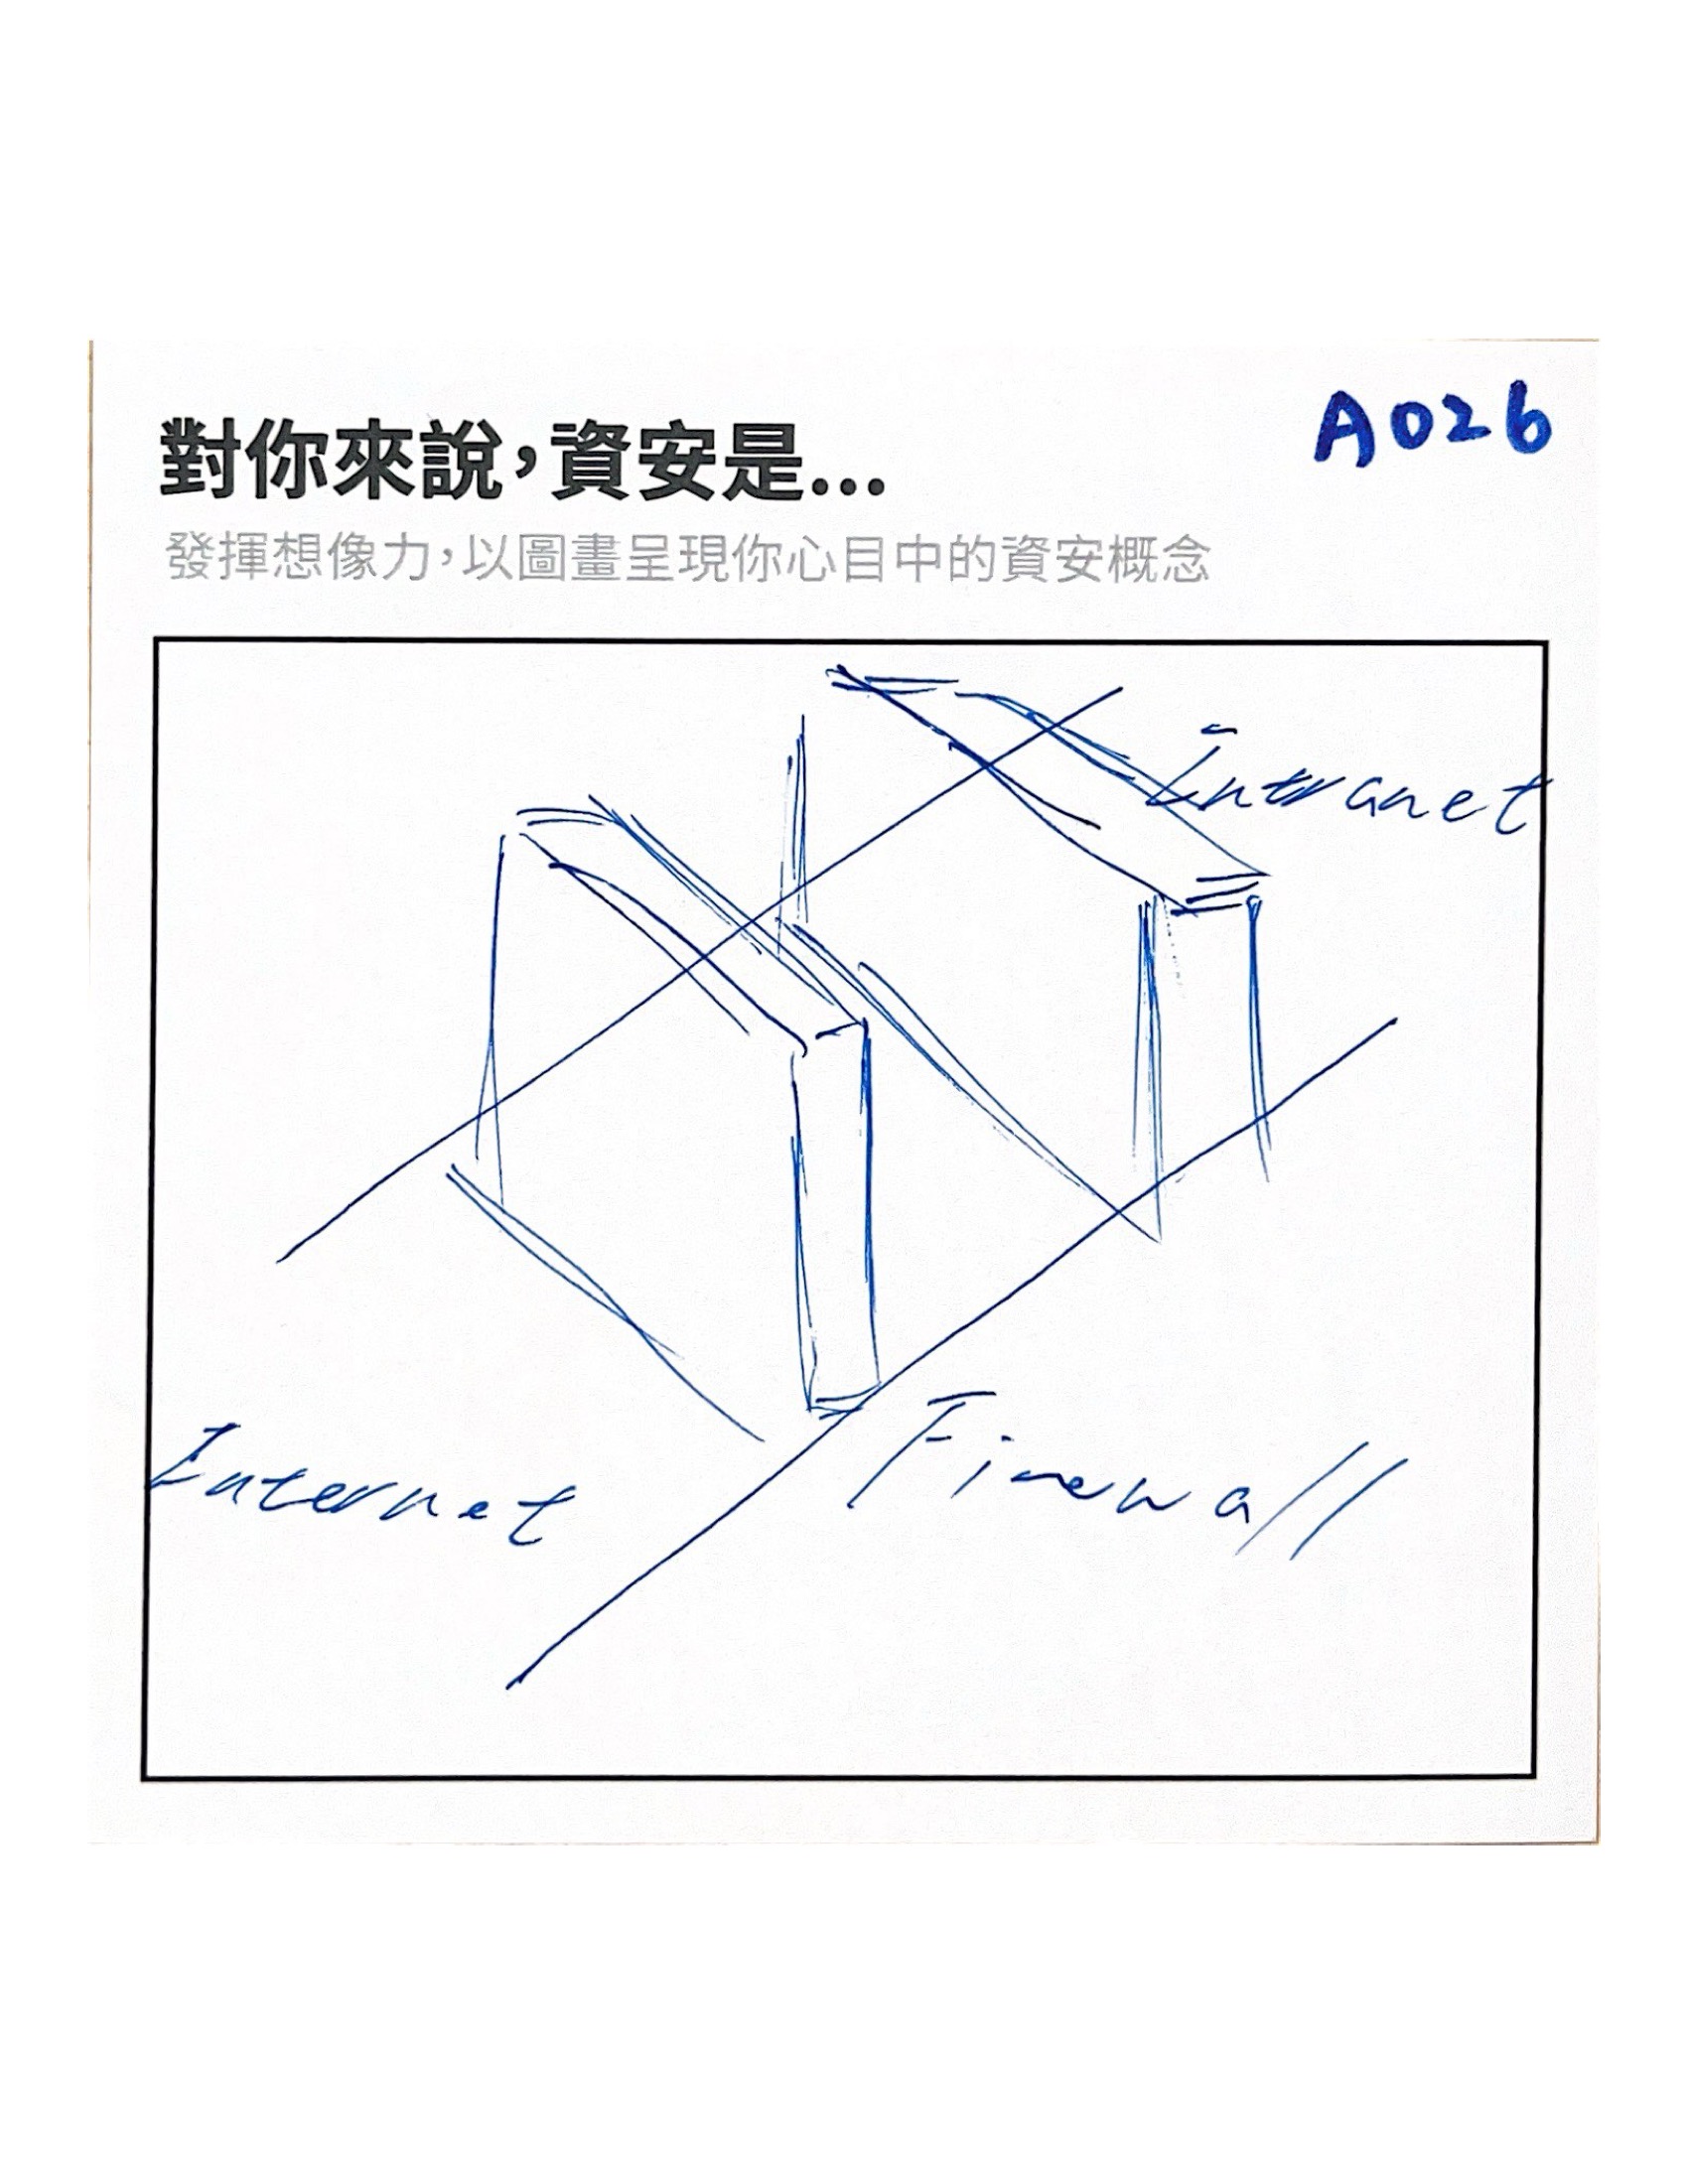 A026
對你來說,資安是...
發揮想像力,以圖畫呈現你心目中的資安概念
Intranet
Internet
Firewall